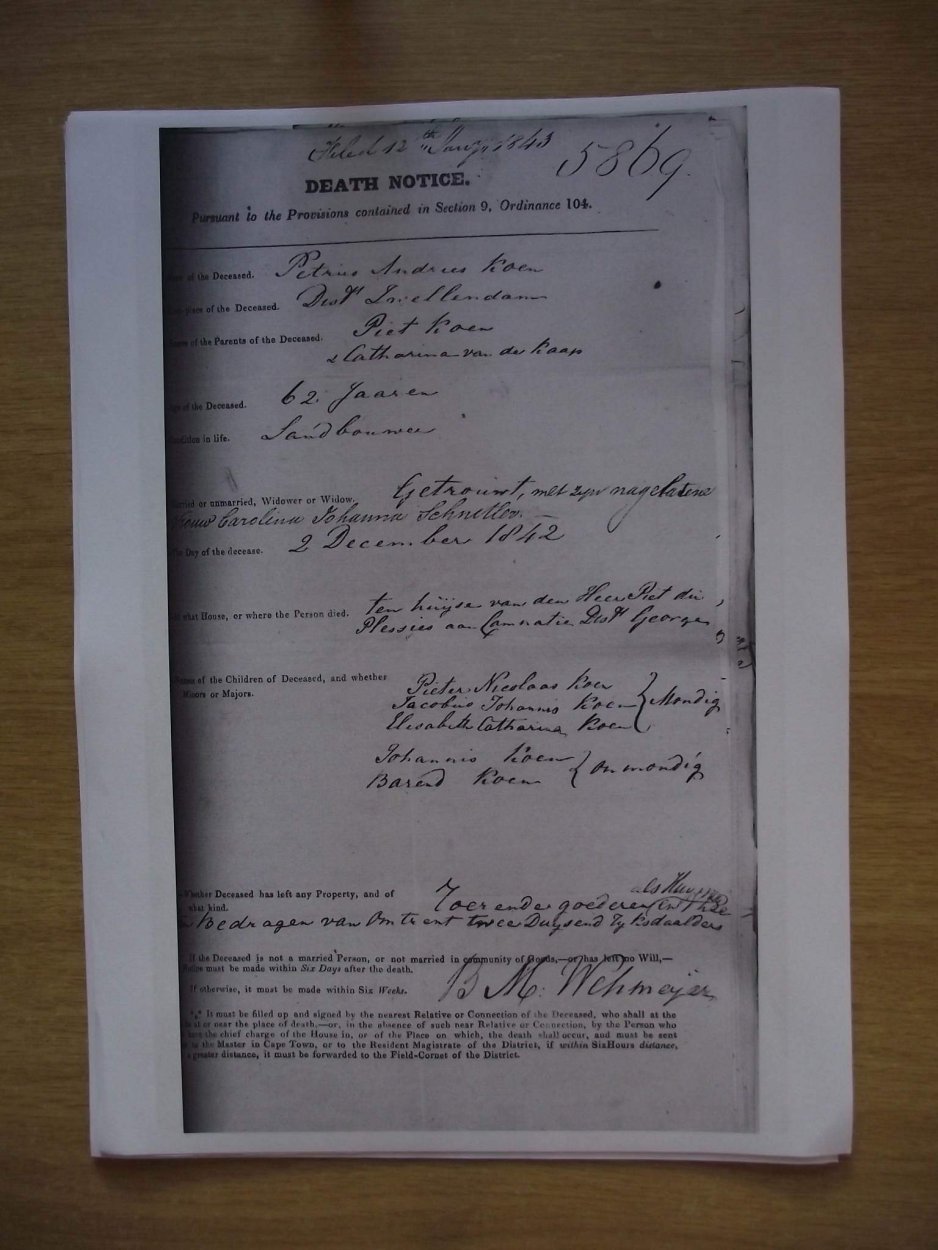 Filed 12th Jany 1843
5869.
DEATH NOTICE.
Pursuant to the Provisions contained in Section 9, Ordinance 104.
of the Deceased. Petrus Andries Koen
place of the Deceased. Distt Swellendam
of the Parents of the Deceased. Piet Koen
& Catharina van de Kaap
of the Deceased. 62 Jaaren
Condition in life. Landbouwer
Married or unmarried, Widower or Widow. Getrouwt, met zyn nagelatene
vrouw Carolina Johanna Schnetler. —
The Day of the decease. 2 December 1842
what House, or where the Person died. ten huijse van den Heer Piet du
Plessies aan Distt George
of the Children of Deceased, and whether
Minors or Majors.
Pieter Nicolaas Koen
Jacobus Johannis Koen } Mondig
Elisabeth Catharina Koen
Johannis Koen
Barend Koen } onmondig
Whether Deceased has left any Property, and of
what kind. goederen
bedragen van Omtrent twee Duysend Ryksdaalders
If the Deceased is not a married Person, or not married in community of Goods,—or has left no Will,—
must be made within Six Days after the death.
If otherwise, it must be made within Six Weeks. B M: Wehmeijer
*** It must be filled up and signed by the nearest Relative or Connection of the Deceased, who shall at the
at or near the place of death,—or, in the absence of such near Relative or Connection, by the Person who
the chief charge of the House in, or of the Place on which, the death shall occur, and must be sent
to the Master in Cape Town, or to the Resident Magistrate of the District, if within Six Hours distance,
greater distance, it must be forwarded to the Field-Cornet of the District.